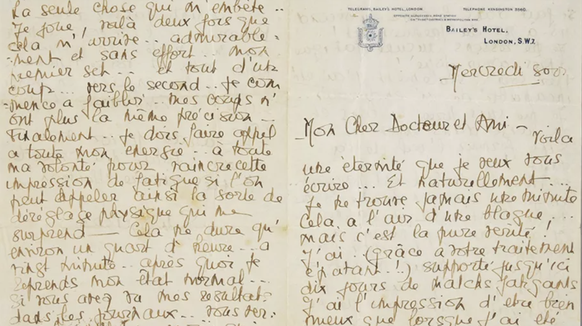 TELEGRAMS, BAILEY'S HOTEL, LONDON.
TELEPHONE KENSINGTON
BAILEY'S HOTEL,
LONDON, S.W.7.
Mercredi soir
Mon Cher Docteur et Ami - Voilà
une éternité que je veux vous
écrire... Et naturellement...
je ne trouve jamais une minute
Cela a l'air d'une blague...
mais c'est la pure vérité!
J'ai (grâce à votre traitement
épatant!) supporté jusqu'ici
dix jours de matchs fatigants
J'ai l'impression d'être bien
mieux que lorsque j'ai été
La seule chose qui m'embête..
Je joue, voilà deux fois que
cela m'arrive admirable-
ment et sans effort mon
premier set... et tout d'un
coup... vers le second.. je com
mence à faiblir... mes coups n'
ont plus la même précision...
Finalement.. je dois faire appel
à toute mon énergie.. à toute
ma volonté pour vaincre cette
impression de fatigue si l'on
peut appeler ainsi la sorte de
déréglage physique qui me
surprend — Cela ne dure qu'
environ un quart d'heure.. a
vingt minutes.. après quoi je
reprends mon état normal...
Si vous avez vu mes résultats
dans les journaux... vous